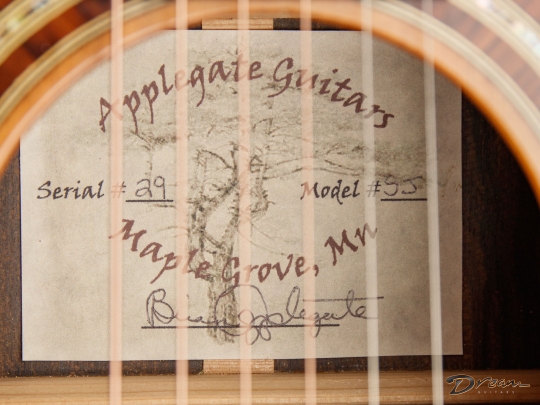 Applegate Guitars
Serial # 29 Model # SJ
Maple Grove, Mn
Brian Applegate
Dream
GUITARS